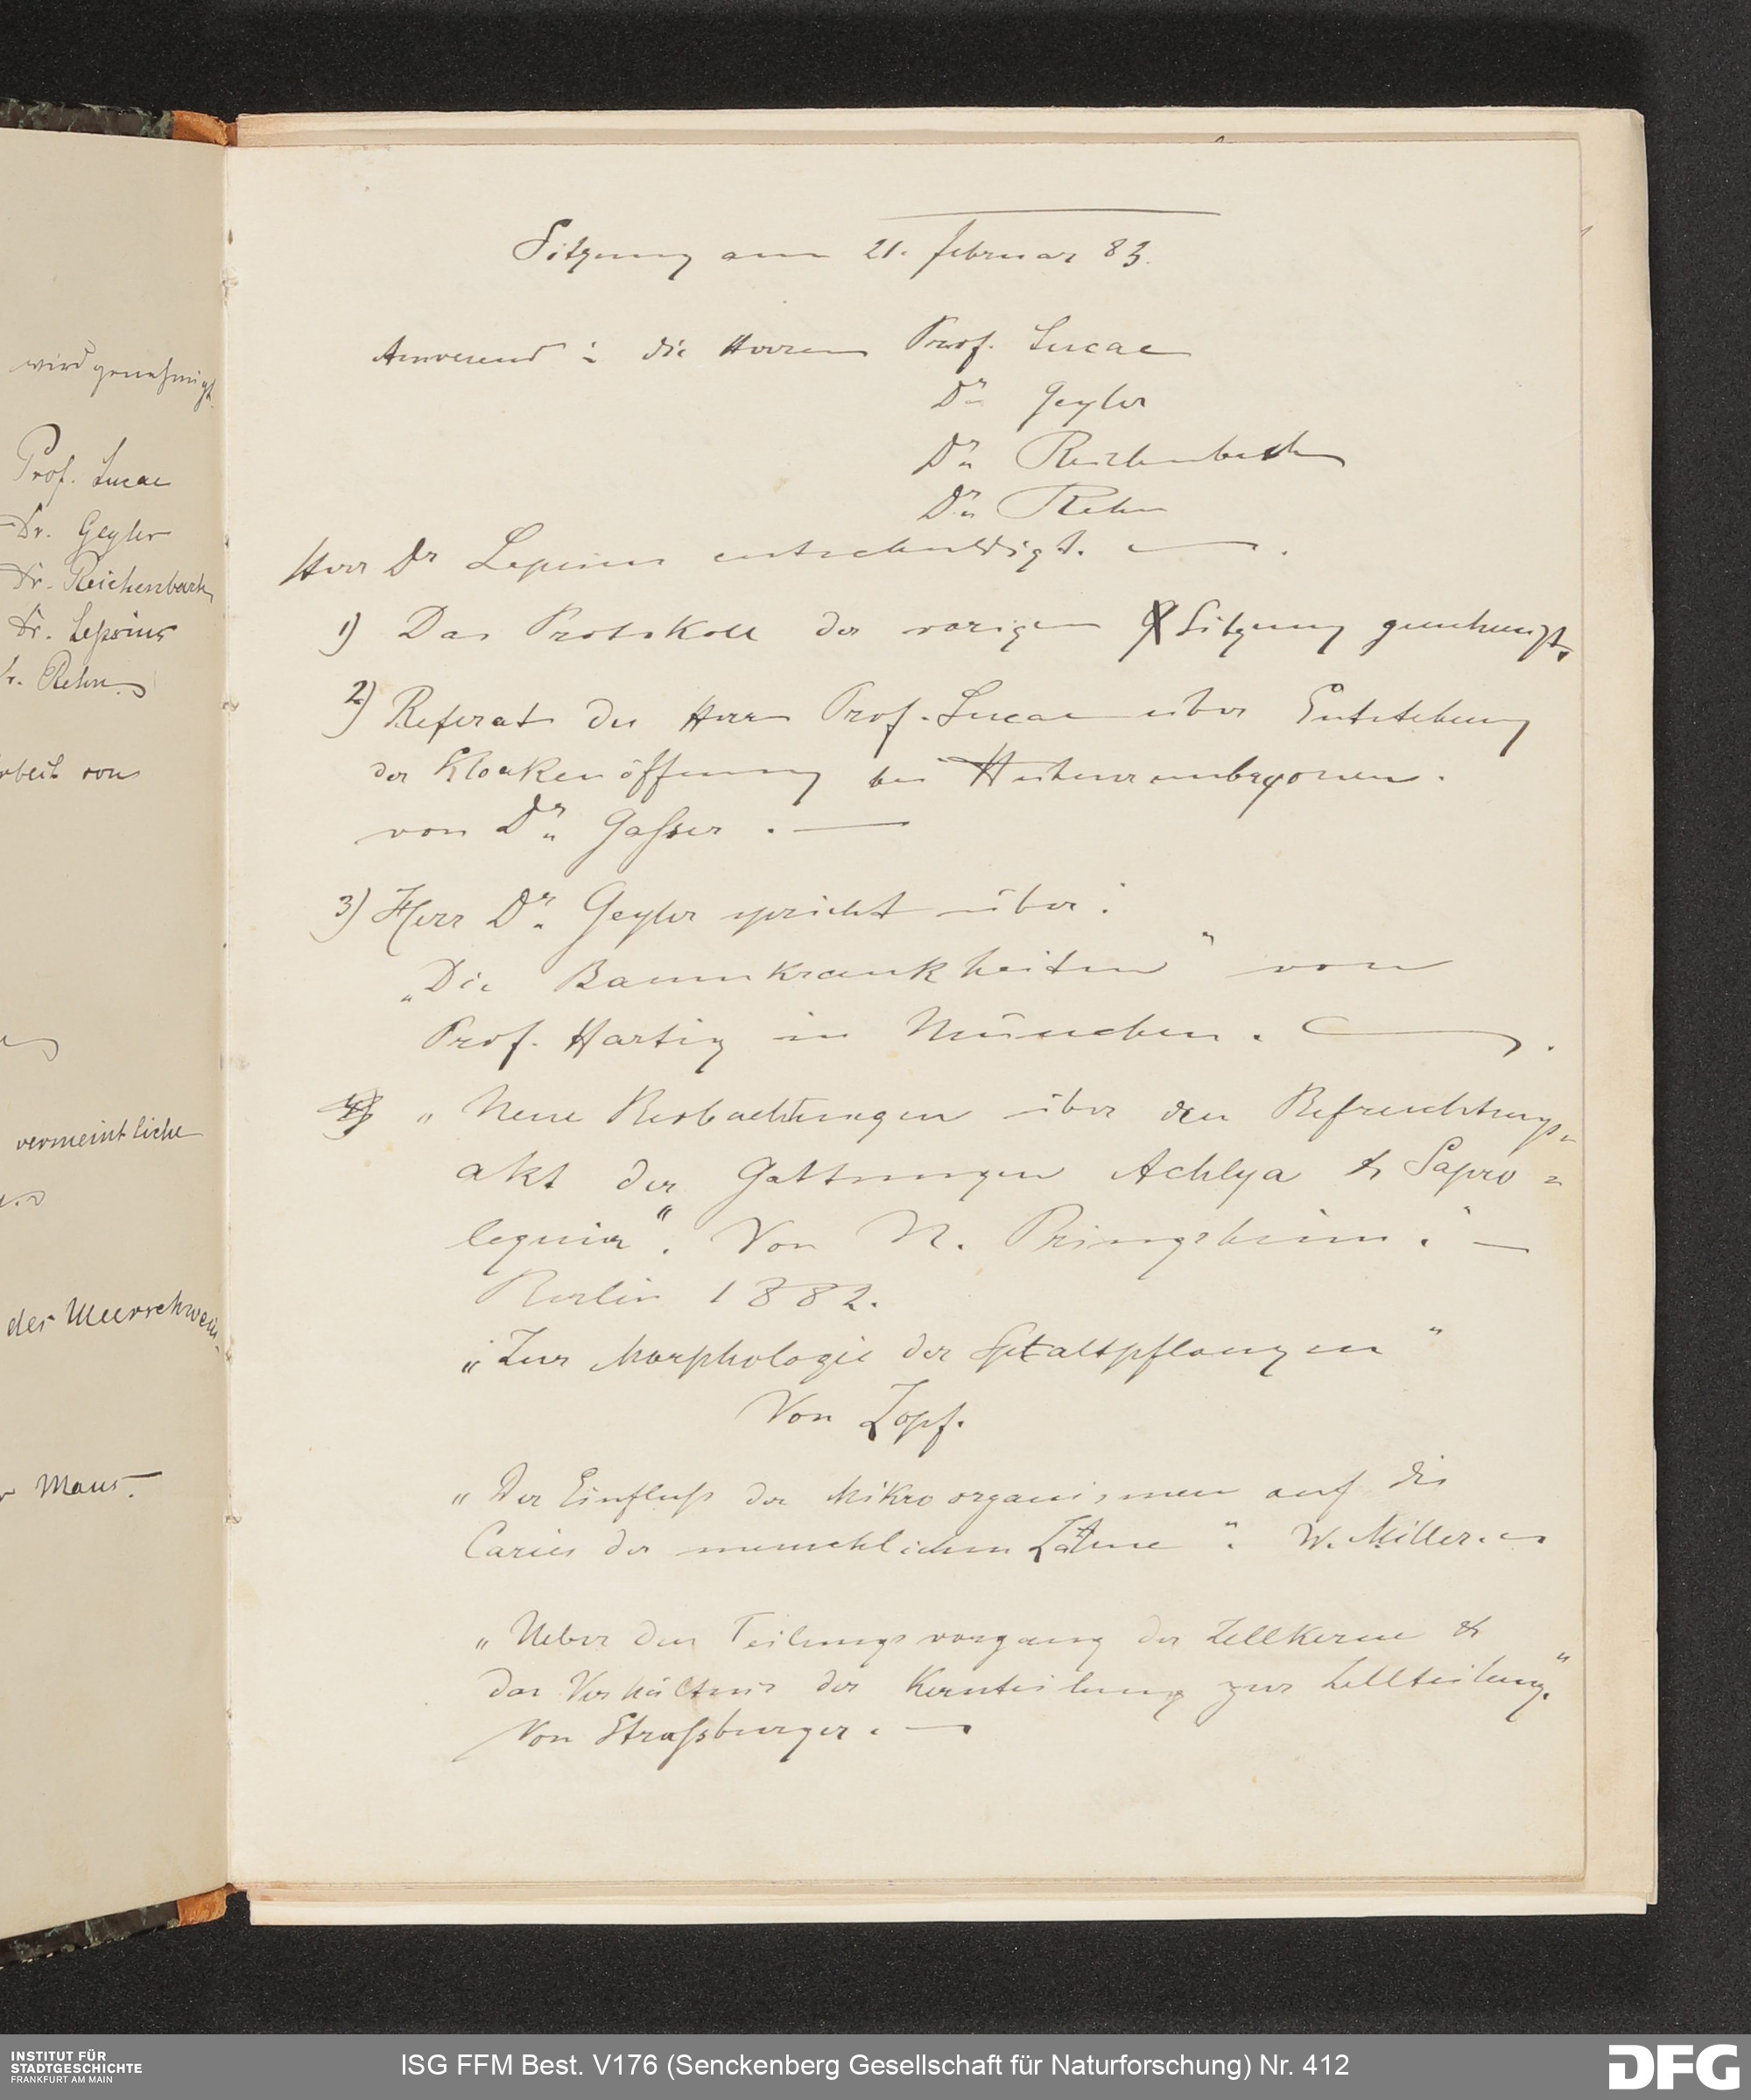 wird genehmigt.
Prof. Lucae
Dr. Geyler
Dr. Reichenbach
Dr. Lepsius
Dr. Rehn.
rbeit von
vermeintliche
des Meerschwein
Maus.
Sitzung am 21. Februar 83.
Anwesend: die Herren Prof. Lucae
Dr. Geyler
Dr. Reichenbach
Dr. Rehn
Herr Dr Lepsius entschuldigt. —.
1) Das Protokoll der vorigen Sitzung genehmigt.
2) Referat des Herrn Prof. Lucae über Entstehung
der Kloakenöffnung bei Hühnerembryonen.
von Dr. Gasser. —
3) Herr Dr. Geyler spricht über:
„Die Baumkrankheiten" von
Prof. Hartig in München. —.
4) „Neue Beobachtungen über den Befruchtungs-
akt der Gattungen Achlya & Sapro=
legnia". Von N. Pringsheim. —
Berlin 1882.
„Zur Morphologie der Spaltpflanzen"
Von Zopf.
„Der Einfluß der Mikroorganismen auf die
Caries der menschlichen Zähne". W. Miller. —
„Ueber den Teilungsvorgang der Zellkerne &
das Verhältnis der Kernteilung zur Zellteilung".
Von Straßburger. —
INSTITUT FÜR
STADTGESCHICHTE
FRANKFURT AM MAIN
ISG FFM Best. V176 (Senckenberg Gesellschaft für Naturforschung) Nr. 412
DFG